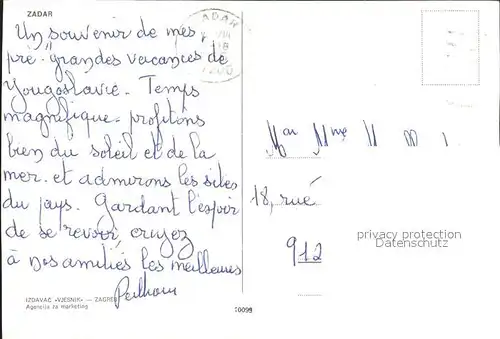 ZADAR
Un souvenir de mes
pré-"grandes vacances de
Yougoslavie. Temps
magnifique. profitons
bien du soleil et de la
mer. et admirons les sites
du pays. Gardant l'espoir
de se revoir, croyez
à nos amitiés les meilleures
IZDAVAČ «VJESNIK» — ZAGREB
Agencija za marketing
10099
ADAR
M Mme
18, rue
912
privacy protection
Datenschutz